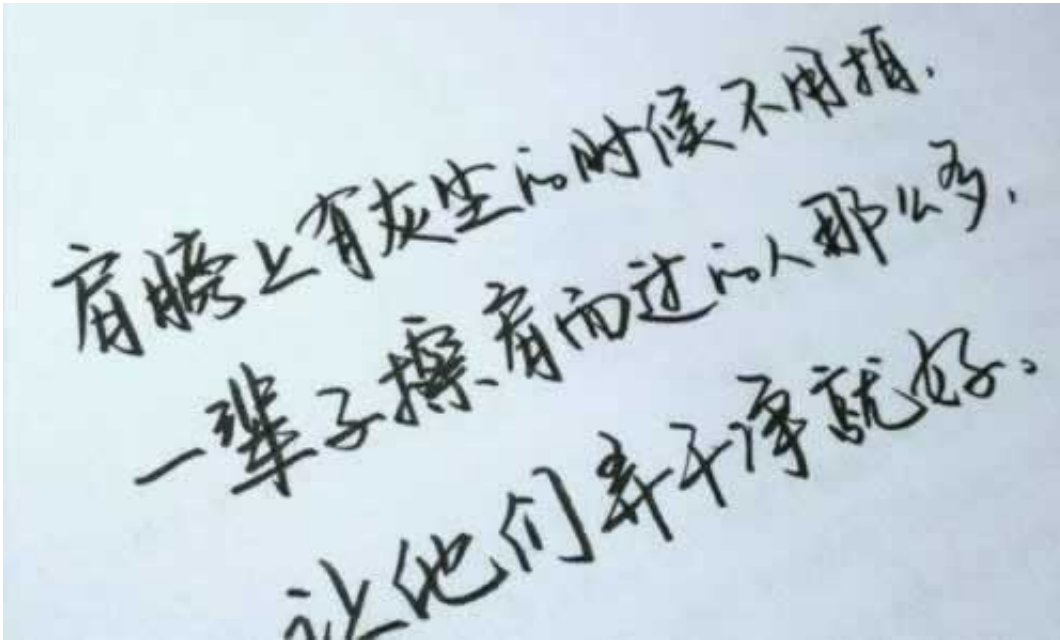 肩膀上有灰尘的时候不用拍，
一辈子擦肩而过的人那么多，
让他们弄干净就好。